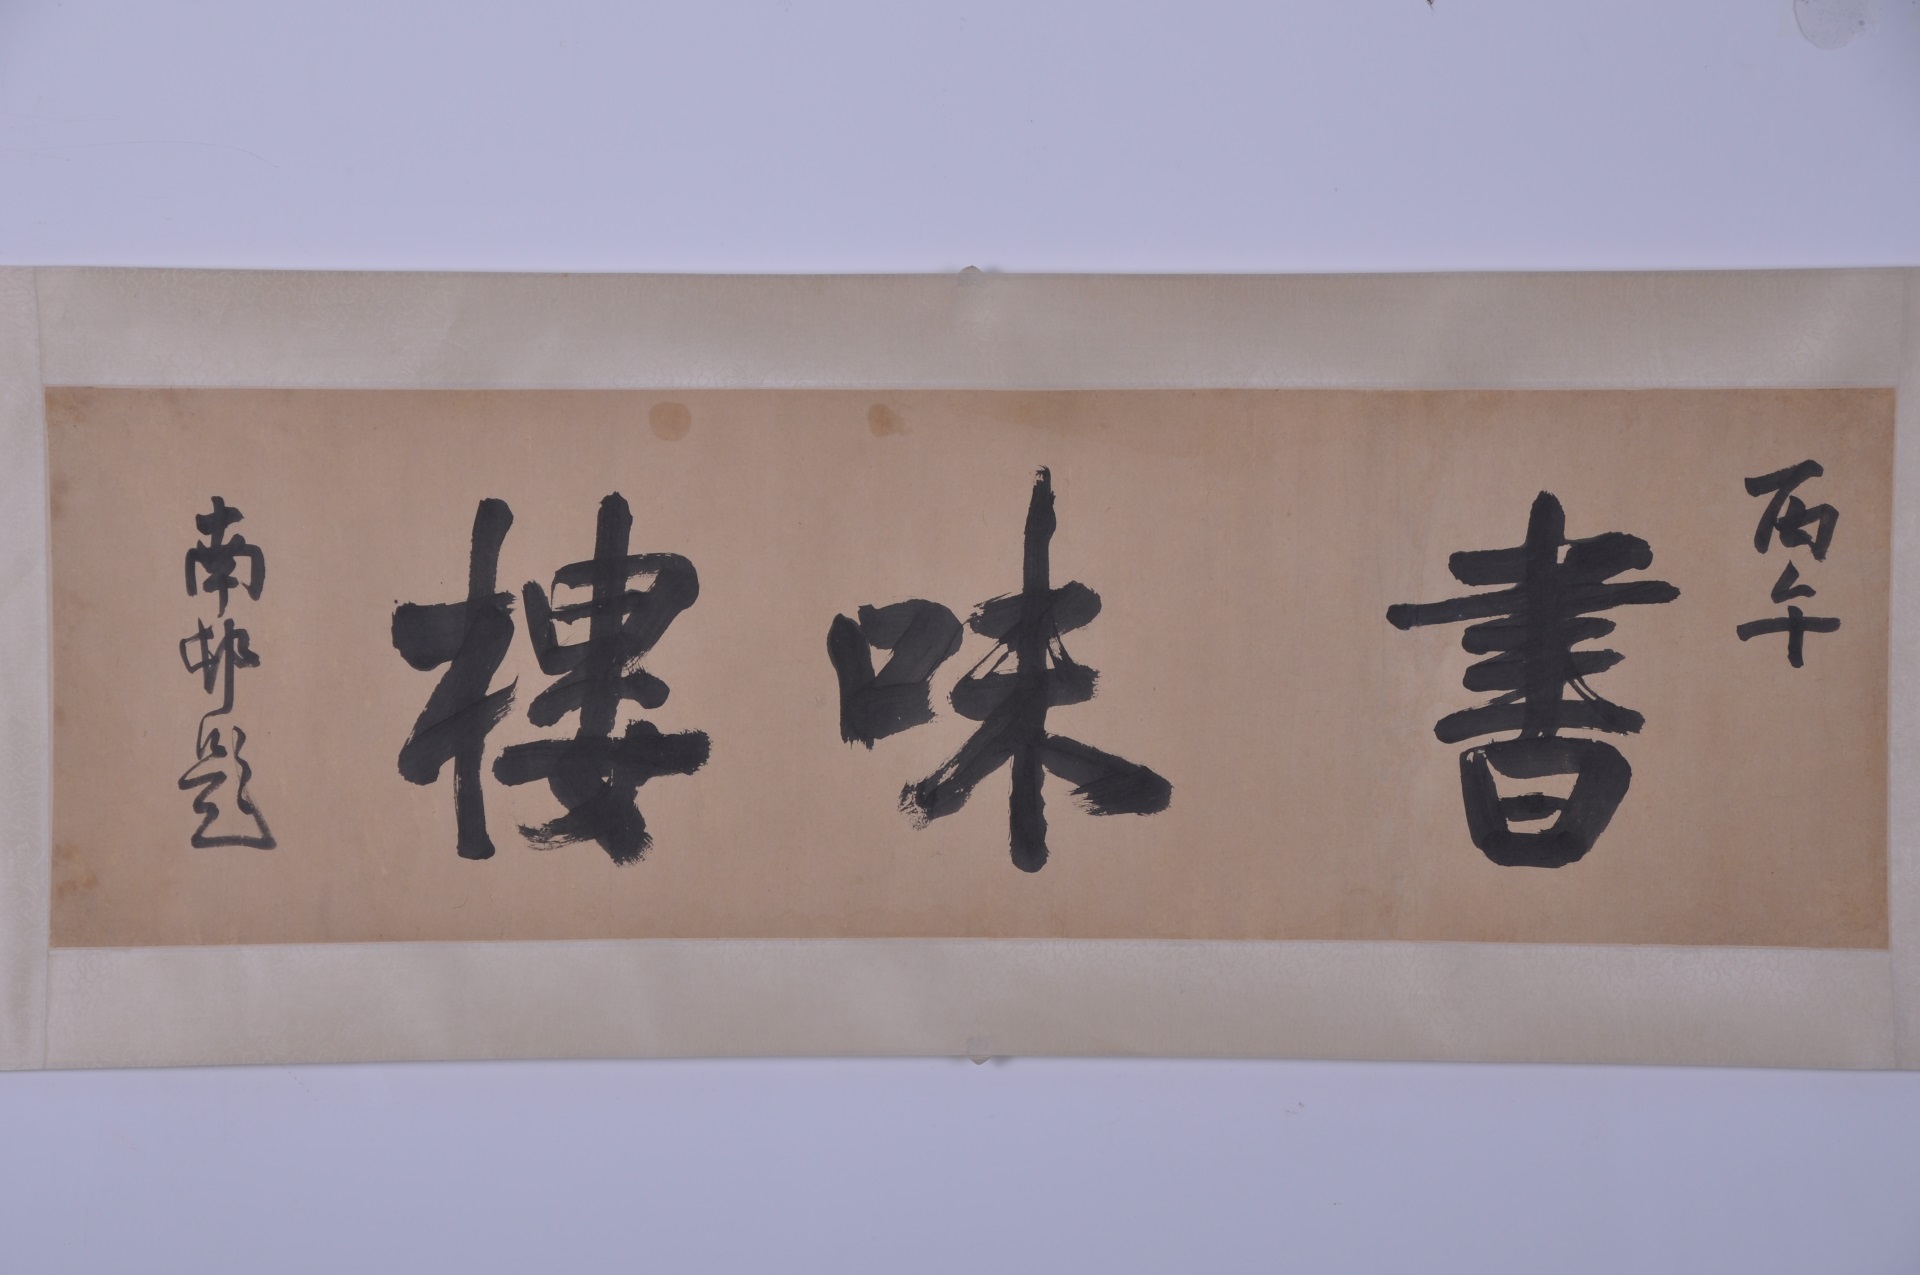 丙午
書味樓
南邨題